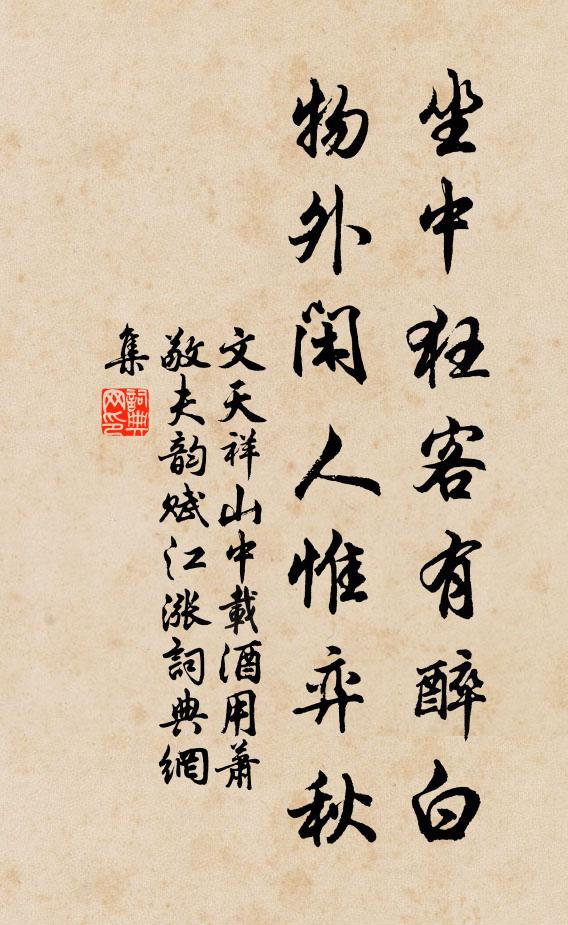 坐中狂客有醉白
物外閑人惟弈秋
文天祥山中載酒用蕭
敬夫韵賦江漲詞典網
集
詞典網印